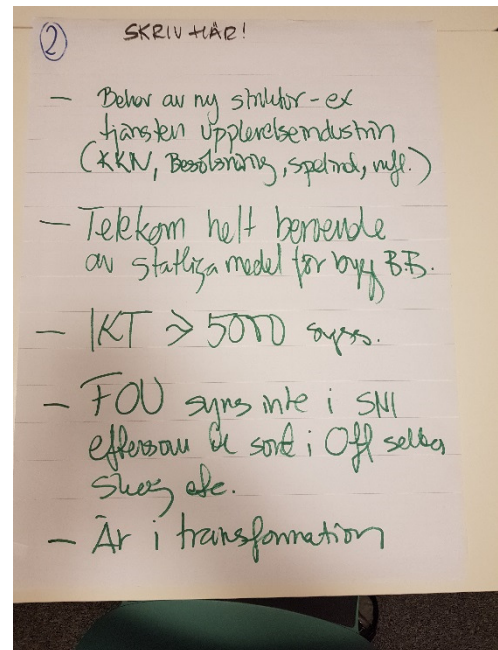 2
SKRIV HÄR!
- Behov av ny struktur - ex
tjänsten upplevelseindustrin
(KKN, Besöksnäring, spelind, mfl.)
- Telekom helt beroende
av statliga medel för bygg B.B.
- IKT → 5000 syss.
- FOU syns inte i SNI
eftersom de sort i Off sektor
skog etc.
- Är i transformation